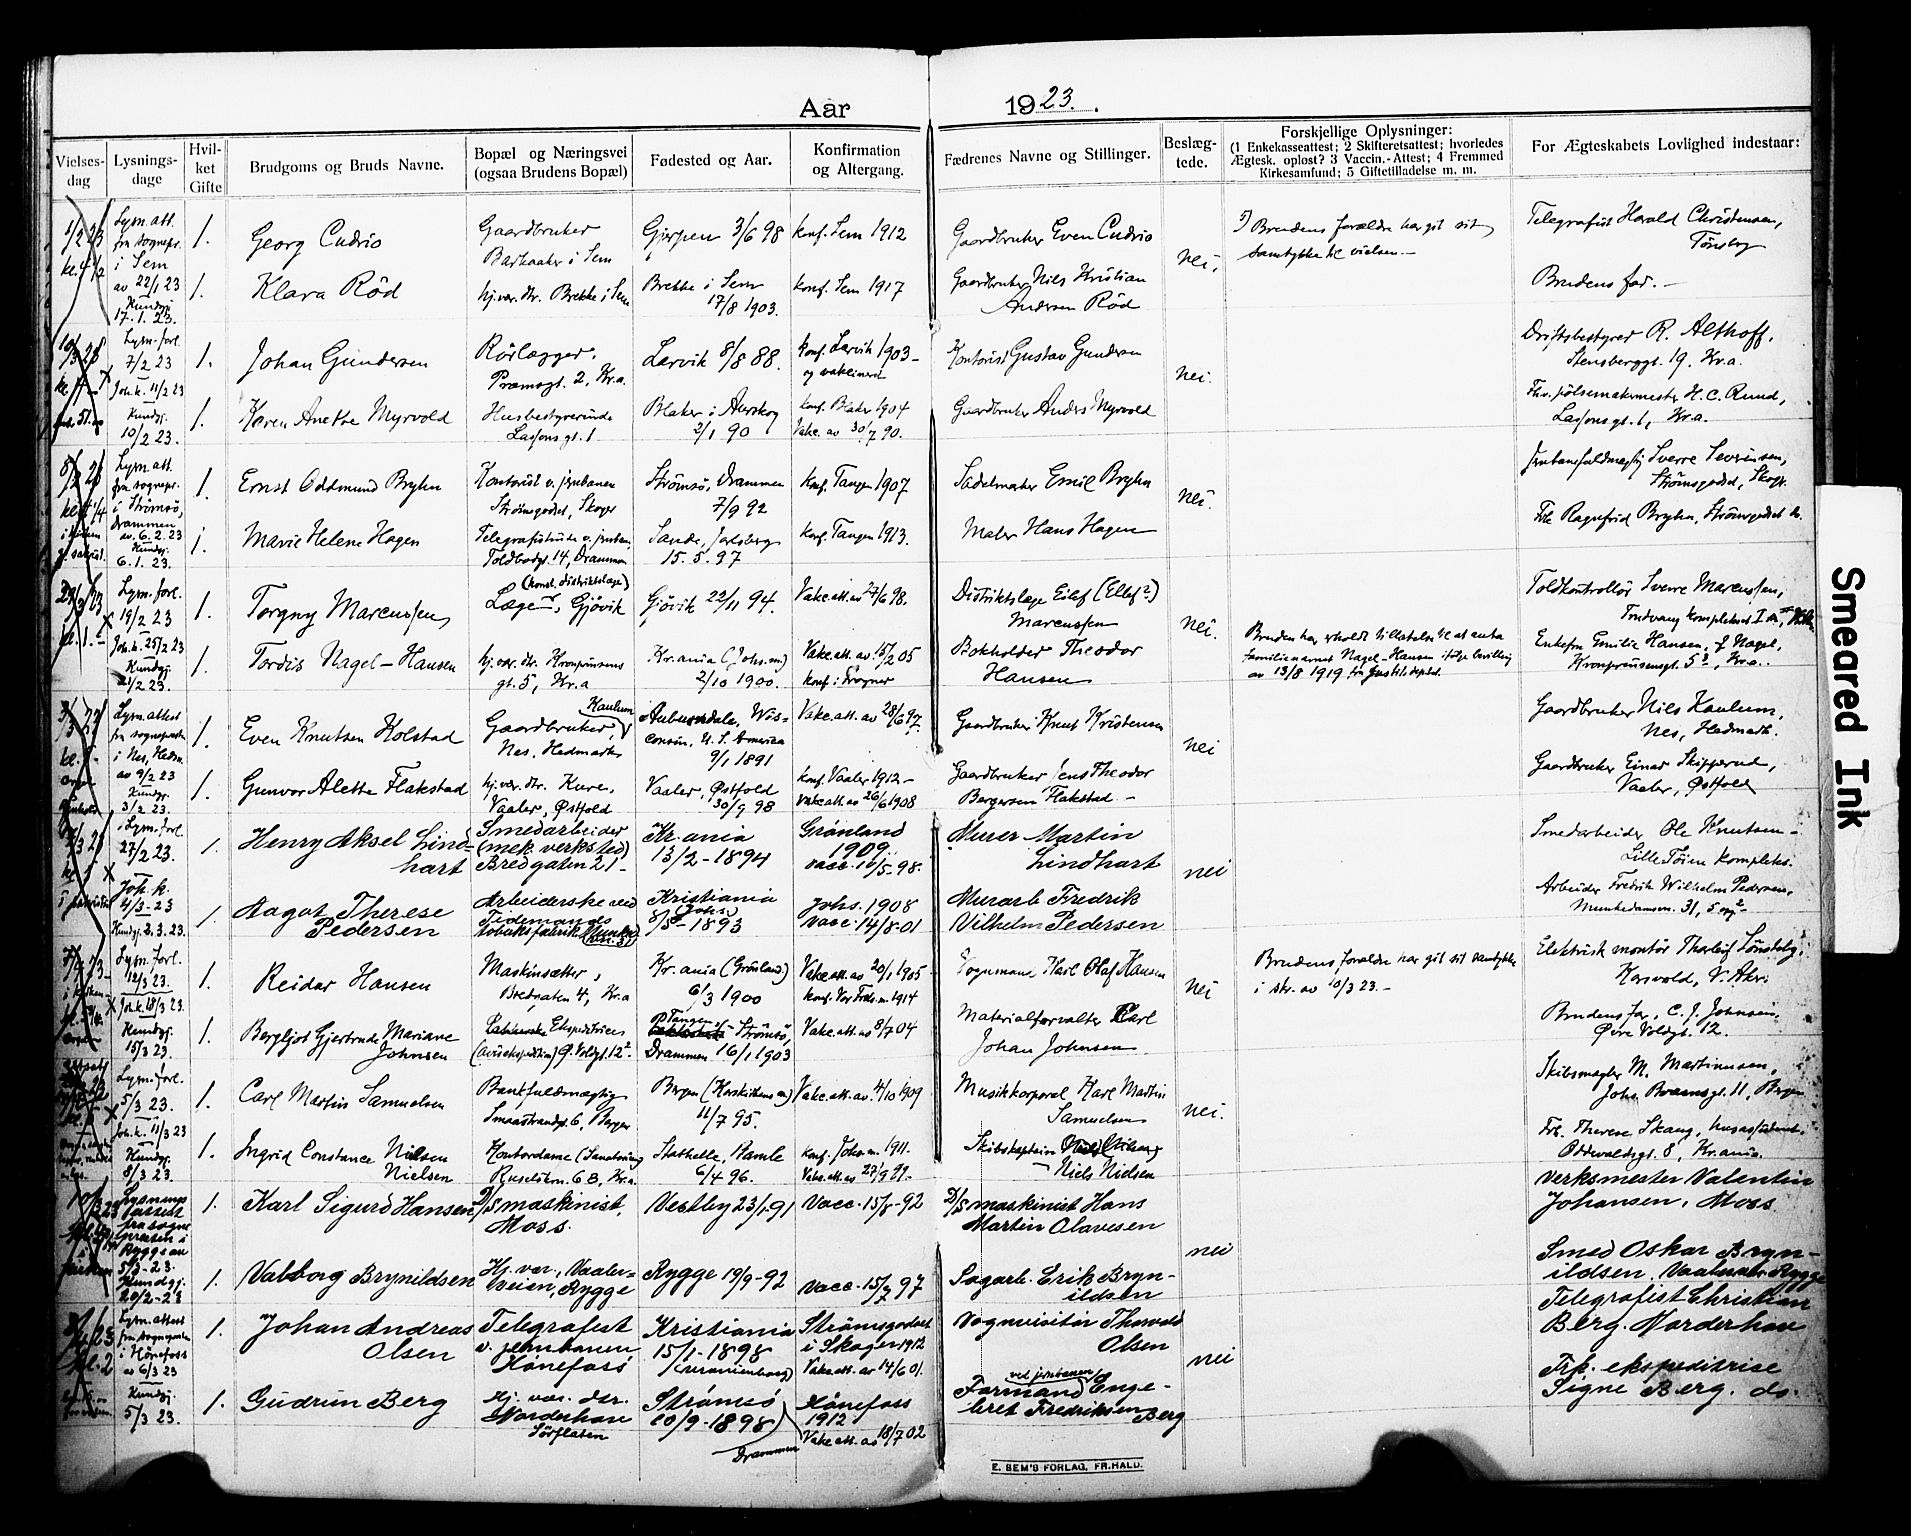 Aar 1923.
Vielses-dag
Lysnings-dage
Hvil-ket Gifte
Brudgoms og Bruds Navne.
Bopæl og Næringsvei
(ogsaa Brudens Bopæl)
Fødested og Aar.
Konfirmation
og Altergang.
Fædrenes Navne og Stillinger.
Beslæg-tede.
Forskjellige Oplysninger:
(1 Enkekasseattest; 2 Skifteretsattest; hvorledes
Ægtesk. opløst? 3 Vaccin.-Attest; 4 Fremmed
Kirkesamfund; 5 Giftetilladelse m. m.
For Ægteskabets Lovlighed indestaar:
Lysn. att.
fra sognepr.
i Sem
av 22/1 23
Kundgj.
17.1.23.
1. Georg Cudrio
Gaardbruker
Barkaaker i Sem
Gjerpen 3/6 98
konf. Sem 1912
Gaardbruker Even Cudrio
nei.
Brudens forældre har git sit
samtykke til vielsen.—
Telegrafist Harald Christensen,
Tønsberg
1. Klara Rød
hj.vær. dtr. Brekke i Sem
Brekke i Sem
17/8 1903.
konf. Sem 1917
Gaardbruker Nils Kristian
Andersen Rød
Brudens far.—
Lysn. forl.
7/2 23
Joh. k. 11/2 23
Kundgj.
10/2 23.
1. Johan Gundersen
Rørlægger,
Pramsgt. 2, Kr.a.
Larvik 8/8 88.
konf. Larvik 1903—
Kontorist Gustav Gundersen
nei.
Driftsbestyrer R. Althoff,
Stensberggt. 19. Kr.a.
1. Karen Anette Myrvold
Husbestyrerinde
Lassonsgt. 1
Blaker i Aurskog
2/1 90
konf. Blaker 1904
Vakc. av 30/7 90.
Gaardbruker Anders Myrvold
Fhv. pølsemakermester H. C. Ruud,
Lassonsgt. 1, Kr.a.
Lysn. att.
fra sognepr.
i Strømsø,
Drammen
av. 6.2.23
Kundgj.
6.1.23.
1. Ernst Oddmund Bryhn
Kontorist v. jernbanen
Strømsgodset, Skoger
Strømsø, Drammen
7/9 92
Konf. Tangen 1907
Sadelmaker Emil Bryhn
nei.
Jernbanefuldmægtig Sverre Severinsen,
Strømsgodset, Skoger.
Marie Helene Hagen
Telegrafistinde v. jernban.
Toldbodgt. 14, Drammen
Sande, Jarlsberg
15.5.97
Konf. Tangen 1913.
Maler Hans Hagen
Frk. Ragnfrid Bryhn, Strømsgodset
Lysn. forl.
19/2 23
Joh. k. 25/2 23
Kundgj.
21/2 23.
1. Torgny Marcussen
(konst. distriktslæge)
Læge, Gjøvik
Gjøvik 22/11 94.
Vakc. att. av 27/6 98.
Distriktslæge Eilef (Ellef?)
Marcussen
nei.
Toldkontrollør Sverre Marcussen,
1. Tordis Nagel-Hansen
hj. vær. dtr. Kronprinsens
gt. 5, Kr.a
Kr.ania (Johs. m.)
2/10 1900.
Vakc. att. av. 15/2 05
konf. i Frogner
Bokholder Theodor
Hansen
Bruden har erholdt tilladelse til at anta
familienavnet Nagel-Hansen ifølge bevilling
av 13/8 1919 fra Justitsdeptet.
Enkefru Emilie Hansen, f. Nagel,
Kronprinsensgt. 5, Kr.a.
Lysn. attest
fra sognepresten
i Nes, Hedm.
av 9/2 23
Kundgj.
3/2 23.
1. Even Knutsen Kolstad
Kaulum
Gaardbruker,
Nes, Hedmark
Auburndale, Wis-
consin, U. S. America
9/1 1891
Vakc. att. av 28/6 97.
Gaardbruker Knut Kristensen
nei
Gaardbruker Nils Kaulum,
Nes, Hedmark.
1. Gunvor Alette Flakstad
hj. vær. dtr. Kure,
Vaaler, Østfold
Vaaler, Østfold
30/9 98
konf. Vaaler 1912—
Vakc. att. av 26/6 1908
Gaardbruker Jens Theodor
Bergersen Flakstad.—
Gaardbruker Einar Skipperud,
Vaaler, Østfold
Lysn. forl.
27/2 23.
Joh. k.
4/3-23
Kundgj. 2.3.23.
1. Henry Aksel Lind-
hart
Smedarbeider
(mek. verksted)
Bredgaten 21-
Kr.ania
13/2-1894
Grønland
1909.
vacc. 10/5-98.
Murer Martin
Lindhart
nei
Smedarbeider Ole Knutsen—
Lille Tøien kompleks.
1. Aagot Therese
Pedersen
Arbeiderske ved
Tidemands
Tobaksfabrik
Kristiania
(Johs.)
8/5-1893
Johs. 1908
Vacc. 14/8-01
Murarb Fredrik
Vilhelm Pedersen
Arbeider Fredrik Wilhelm Pedersen,
Munkedamsvn. 31, 5 opg 2-
Lysn. forl.
12/3 23.
Joh. k. 18/3 23.
Kundgj.
15/3 23.
1. Reidar Hansen
Maskinsætter,
Bredgaten 4, Kr.a
Kr.ania (Grønland.)
6/3 1900
Vakc. att. av 20/1 1905-
Konf. Vor Frels. m. 1914
Vognmand Karl Olaf Hansen
nei
Brudens forældre har git sit samtykke
i skr. av 10/3 23.—
Elektrisk montør Thorleif Lønseth,
Korsvold, V. Aker.
1. Bergljot Gjertrude Mariane
Johnsen
Ekspeditrice
(avisekspedition) Ø. Voldgt. 12
Tangen
Strømsø,
Drammen 16/1 1903
Vakc. att. av 8/7 04
Materialforvalter Carl
Johan Johnsen
Brudens far, C. J. Johnsen,
Øvre Voldgt. 12.
Lysn. forl.
5/3 23.
Joh. k. 11/3 23
Kundgj.
8/3 23.
1. Carl Martin Samuelsen
Bankfuldmægtig
Smaastrandgt. 6, Bergen
Bergen (Korskirkens m)
11/7 95.
Vakc. att. av. 4/10 1909
Musikkorporal Karl Martin
Samuelsen
nei.
Skibsmægler M. Martinussen,
11, Bergen
1. Ingrid Constance Nielsen
Nielsen
Kontordame
Ruseløkvn. 6 B, Kr.a.
Stathelle, Bamle
6/4 96.
konf. Johs. m. 1911.
Vakc. att. av 27/9 99.-
Skibskaptein
Niels Nielsen
Frk. Therese Skaug,
Oddvaldsgt. 8, Kr.ania.
Lysnings
attest
fra sogne
presten i
Rygge av
5/3-23.
Kundgj.
20/2-23
1. Karl Sigurd Hansen
D/S maskinist,
Moss.
Vestby 23/1-91
Vacc. 15/8-92
D/S maskinist Hans
Martin Olavesen
nei
Verksmester Valentin
Johansen, Moss
1. Valborg Brynildsen
Hj. vær., Vaaler-
veien, Rygge
Rygge 19/9-92
Vacc. 15/7 97
Sagarb. Erik Bryn-
ildsen
Smed Oskar Bryn-
ildsen, Vaalerv. Rygge
Lysn. attest
fra sognepresten
i Hønefoss
av 6/3 23
Kundgj.
5/3 23.
1. Johan Andreas
Olsen
Telegrafist
v. jernbanen
Hønefoss
Kristiania
15/1-1898
(Uranienborg)
Strømsgodset
i Skoger 1912
Vakc. att. av 14/6 01.
Vognvisitør Thorvald
Olsen
nei
Telegrafist Christian
Berg. Norderhov
1. Gudrun Berg
Hj. vær. dtr.
Norderhov
Sørflaten
Strømsø
20/9-1898
Drammen
Hønefoss
1912
Vakc. att. av 18/7 02
ved jernbanen
Formand Enge-
bret Fredriksen Berg
Frk. ekspeditrise
Signe Berg. do.
E. SEM'S FORLAG, FR.HALD.
Smeared Ink